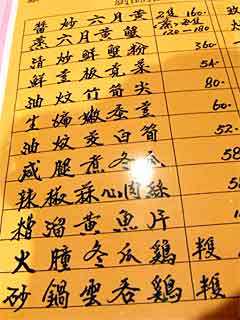 醬炒六月黄 2隻 160.
蒸六月黄蟹 120—180
清炒鮮蟹粉 360
鮮蓋板莧菜 54.
油炆竹筍尖 80.
生煸嫩蚕荳 60.
油炆茭白筍 52.
咸腿煮冬瓜 58
辣椒蔴心肉絲 58
糟溜黄魚片
火腫冬瓜鷄 雙
砂鍋雲吞鷄 雙